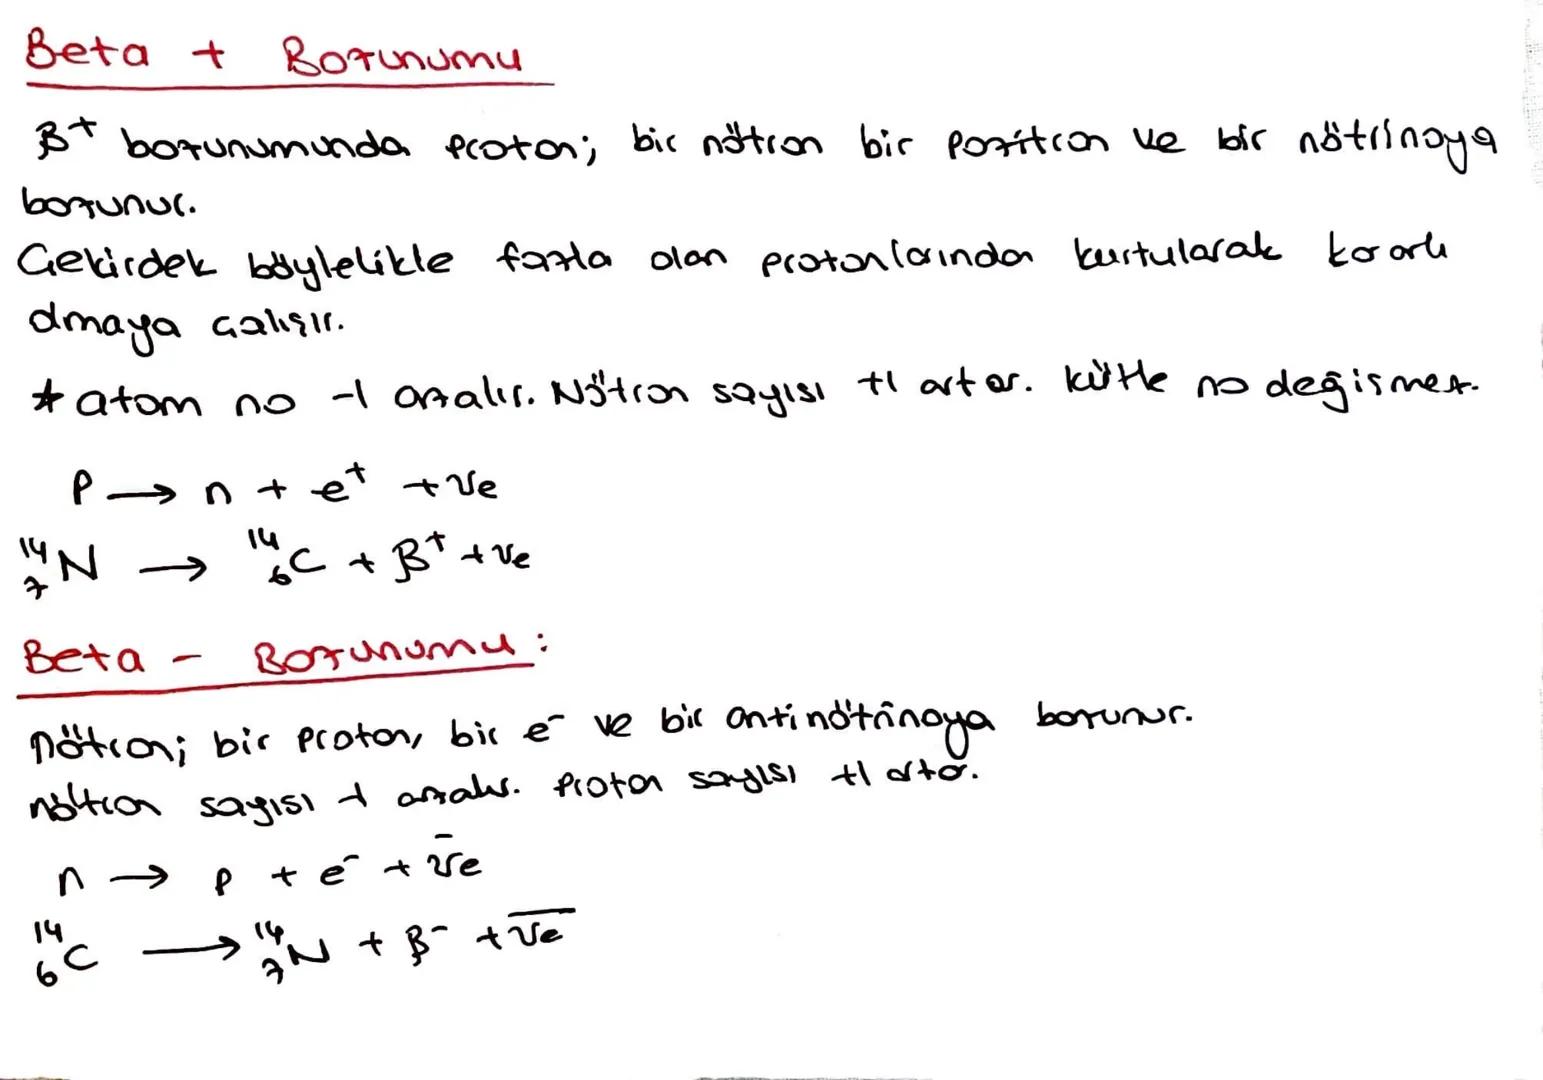 Beta + Bozunumu
β⁺ bozunumunda proton; bir nötron bir pozitron ve bir nötrinoya
bozunur.
Çekirdek böylelikle fazla olan protonlarından kurtularak kararlı
olmaya çalışır.
* atom no -1 azalır. Nötron sayısı +1 artar. kütle no değişmez.
P → n + e⁺ + νe
¹⁴₇N → ¹⁴₆C + β⁺ + νe
Beta - Bozunumu:
nötron; bir proton, bir e⁻ ve bir antinötrinoya bozunur.
nötron sayısı -1 azalır. Proton sayısı +1 artar.
n → p + e⁻ + ν̄e
¹⁴₆C → ¹⁴₇N + β⁻ + ν̄e